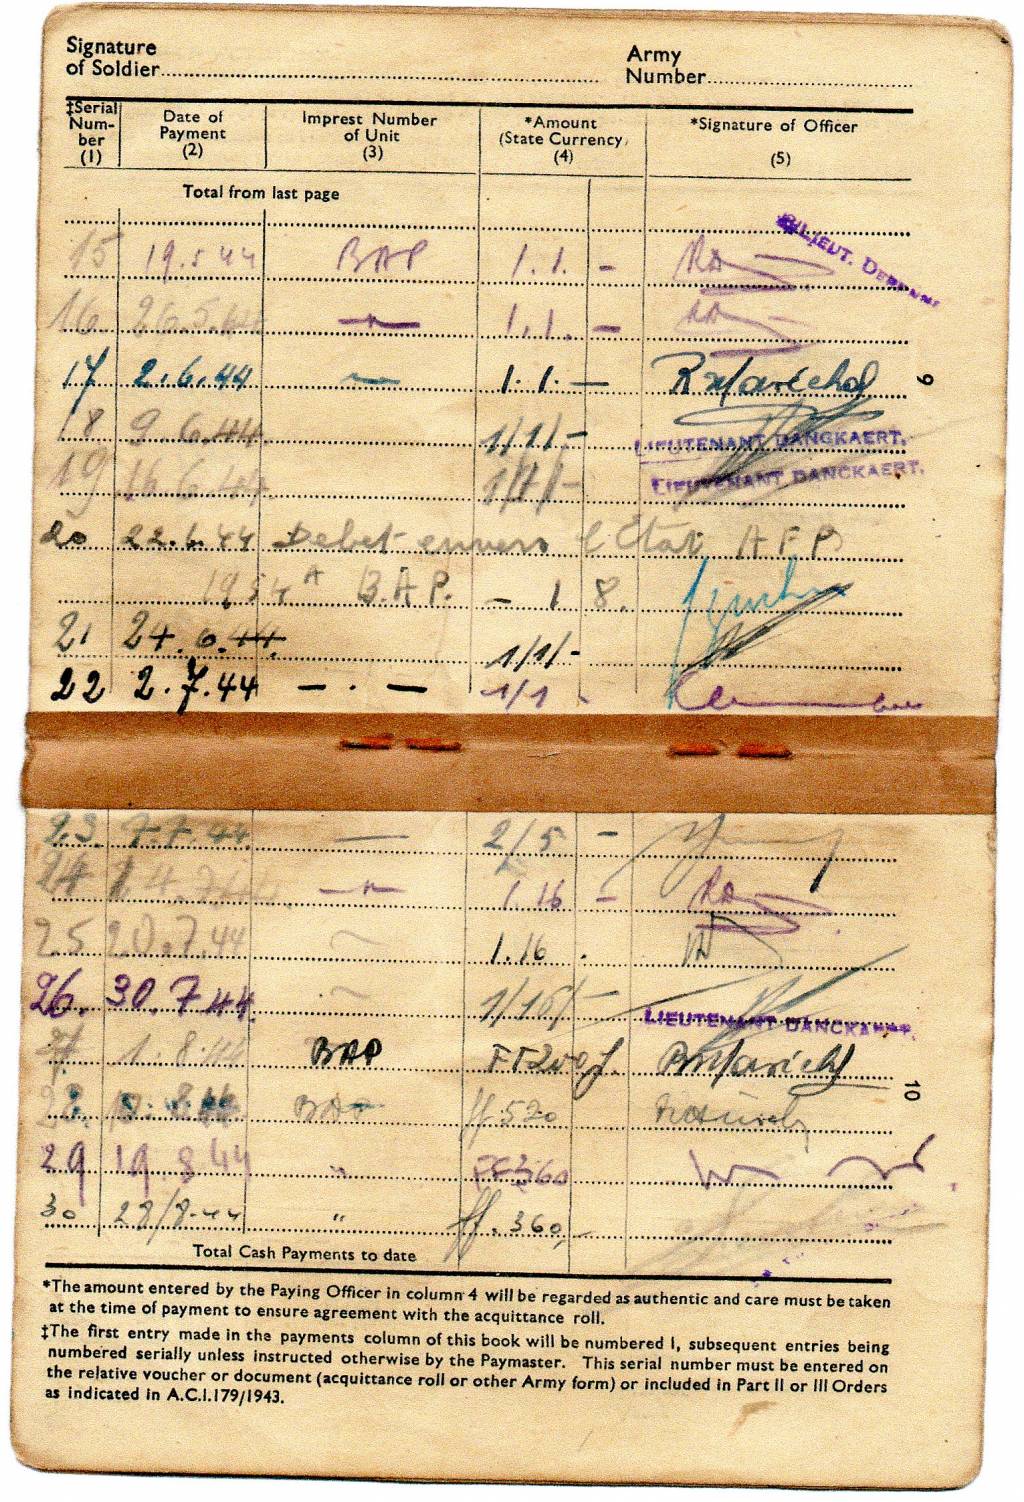 Signature
of Soldier
Army
Number
‡Serial Num- ber (1) Date of Payment (2) Imprest Number of Unit (3) *Amount (State Currency) (4) *Signature of Officer (5)
Total from last page
15 19.5.44 BAP 1.1. –
16 26.5.44 1.1. –
17 2.6.44 1.1. – R Maréchal
9
18 9.6.44. 1/1/- LIEUTENANT DANCKAERT.
19 16.6.44. 1/1/- LIEUTENANT DANCKAERT.
20 22.6.44 Debet envers l'Etat AFP
B.A.P. – 1 8.
21 24.6.44. 1/1/-
22 2.7.44 – . – 1/1 -
23. 7.7.44. — 2/5 –
24 14.7.44. 1.16 –
25 20.7.44 1.16 .
26. 30.7.44. 1/16/- LIEUTENANT DANCKAERT.
27. 1.8.44 BAP FF200f.
10
28. 8.44 BAP ff 520
29 19.8.44 " FF360
30 28/8.44 " ff. 360,-
Total Cash Payments to date
*The amount entered by the Paying Officer in column 4 will be regarded as authentic and care must be taken
at the time of payment to ensure agreement with the acquittance roll.
‡The first entry made in the payments column of this book will be numbered 1, subsequent entries being
numbered serially unless instructed otherwise by the Paymaster. This serial number must be entered on
the relative voucher or document (acquittance roll or other Army form) or included in Part II or III Orders
as indicated in A.C.I.179/1943.